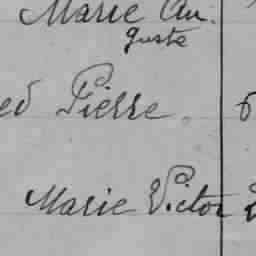 Marie Au.
guste
ed Pierre. 6
Marie Victor